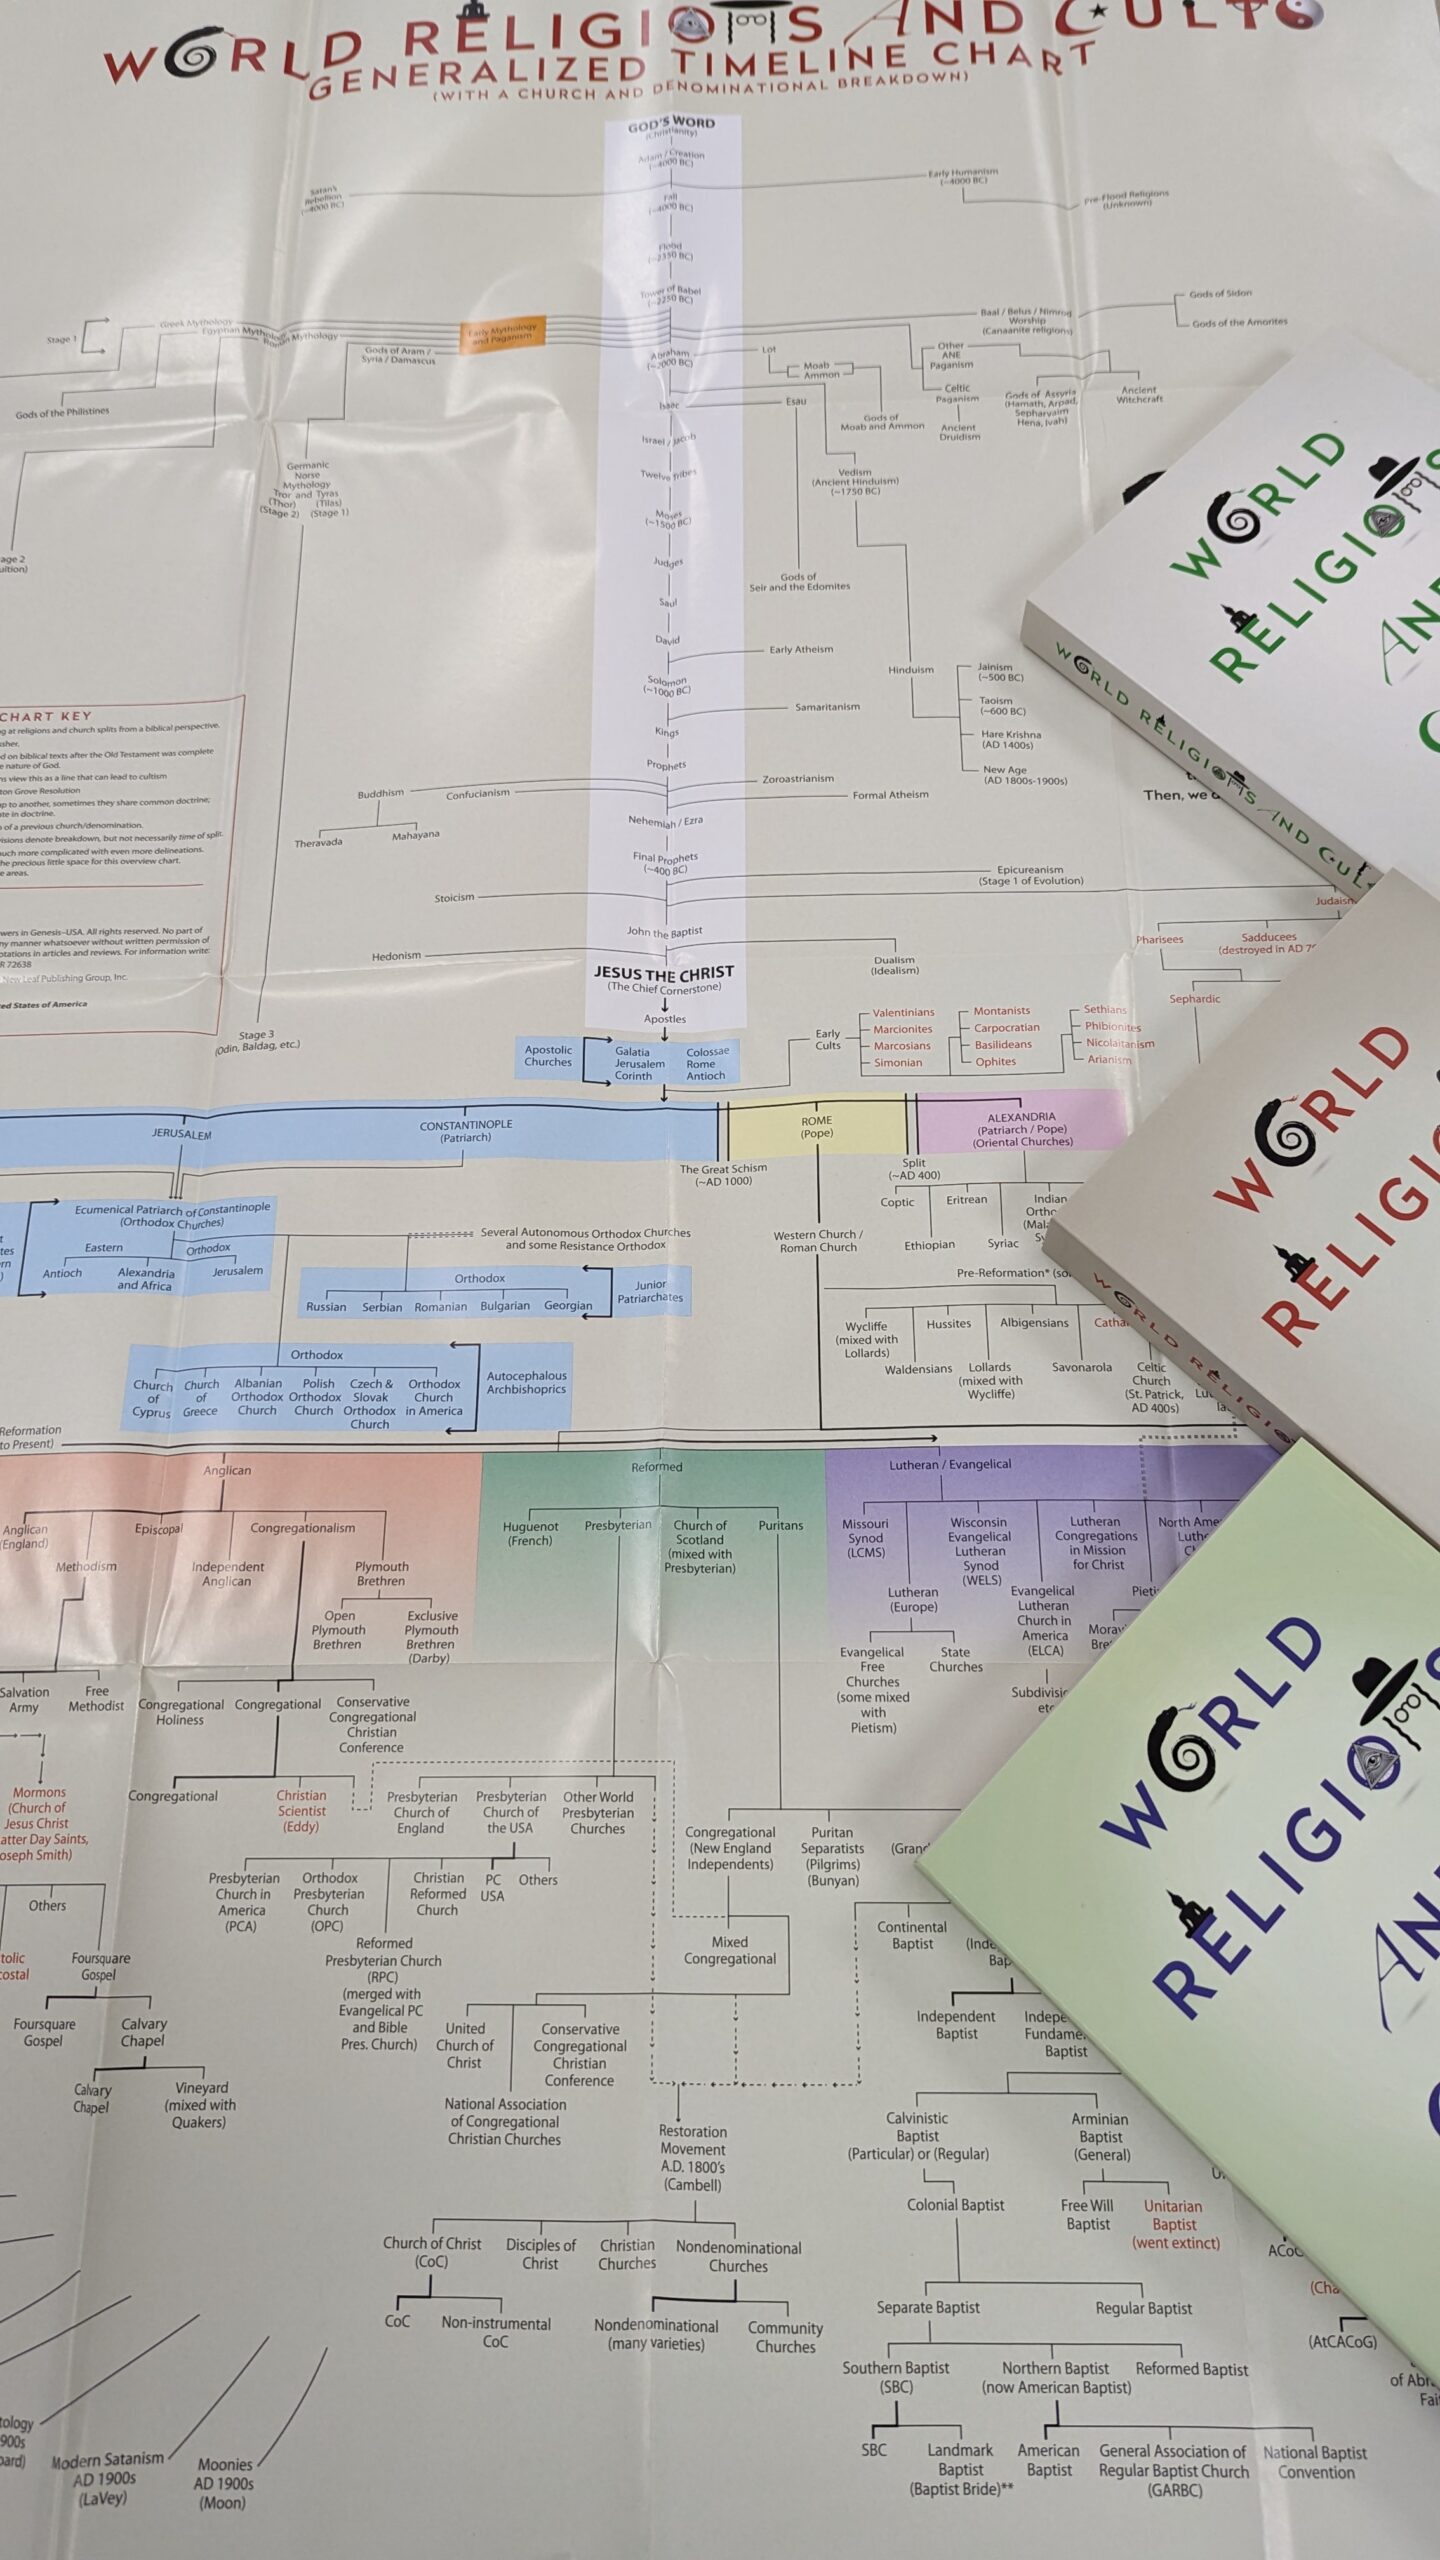 WORLD RELIGIONS AND CULTS
GENERALIZED TIMELINE CHART
(WITH A CHURCH AND DENOMINATIONAL BREAKDOWN)
GOD'S WORD
(Christianity)
Adam / Creation
(~4000 BC)
Satan's
Rebellion
(~4000 BC)
Early Humanism
(~4000 BC)
Pre-Flood Religions
(Unknown)
Fall
(~4000 BC)
Flood
(~2350 BC)
Tower of Babel
(~2250 BC)
Stage 1
Greek Mythology
Egyptian Mythology
Roman Mythology
Gods of Aram /
Syria / Damascus
Early Mythology
and Paganism
Gods of the Philistines
Baal / Belus / Nimrod
Worship
(Canaanite religions)
Gods of Sidon
Gods of the Amorites
Other
ANE
Paganism
Celtic
Paganism
Ancient
Druidism
Gods of Assyria
(Hamath, Arpad,
Sepharvaim
Hena, Ivah)
Ancient
Witchcraft
Abraham
(~2000 BC)
Lot
Moab
Ammon
Gods of
Moab and Ammon
Isaac
Esau
Gods of
Seir and the Edomites
Israel / Jacob
Twelve Tribes
Moses
(~1500 BC)
Judges
Saul
David
Solomon
(~1000 BC)
Kings
Prophets
Nehemiah / Ezra
Final Prophets
(~400 BC)
John the Baptist
JESUS THE CHRIST
(The Chief Cornerstone)
Apostles
Germanic
Norse
Mythology
Tror and Tyras
(Thor) (Tilas)
(Stage 2) (Stage 1)
Stage 3
(Odin, Baldag, etc.)
Vedism
(Ancient Hinduism)
(~1750 BC)
Hinduism
Jainism
(~500 BC)
Taoism
(~600 BC)
Hare Krishna
(AD 1400s)
New Age
(AD 1800s-1900s)
Early Atheism
Samaritanism
Zoroastrianism
Formal Atheism
Buddhism
Confucianism
Theravada
Mahayana
Epicureanism
(Stage 1 of Evolution)
Stoicism
Hedonism
Dualism
(Idealism)
Pharisees
Sadducees
Sephardic
Then, we
CHART KEY
at religions and church splits from a biblical perspective.
on biblical texts after the Old Testament was complete
nature of God.
view this as a line that can lead to cultism
Grove Resolution
to another, sometimes they share common doctrine;
in doctrine.
of a previous church/denomination.
denote breakdown, but not necessarily time of split.
much more complicated with even more delineations.
the precious little space for this overview chart.
areas.
in Genesis–USA. All rights reserved. No part of
manner whatsoever without written permission of
in articles and reviews. For information write:
72638
New Leaf Publishing Group, Inc.
States of America
Apostolic
Churches
Galatia
Jerusalem
Corinth
Colossae
Rome
Antioch
Early
Cults
Valentinians
Marcionites
Marcosians
Simonian
Montanists
Carpocratian
Basilideans
Ophites
Sethians
Phibionites
Nicolaitanism
Arianism
JERUSALEM
CONSTANTINOPLE
(Patriarch)
ROME
(Pope)
ALEXANDRIA
(Patriarch / Pope)
(Oriental Churches)
The Great Schism
(~AD 1000)
Split
(~AD 400)
Coptic
Ethiopian
Eritrean
Syriac
Indian
Ecumenical Patriarch of Constantinople
(Orthodox Churches)
Eastern Orthodox
Antioch
Alexandria
and Africa
Jerusalem
Several Autonomous Orthodox Churches
and some Resistance Orthodox
Orthodox
Russian Serbian Romanian Bulgarian Georgian
Junior
Patriarchates
Western Church /
Roman Church
Pre-Reformation*
Wycliffe
(mixed with
Lollards)
Waldensians
Hussites
Lollards
(mixed with
Wycliffe)
Albigensians
Savonarola
Celtic
Church
(St. Patrick,
AD 400s)
Orthodox
Church
of
Cyprus
Church
of
Greece
Albanian
Orthodox
Church
Polish
Orthodox
Church
Czech &
Slovak
Orthodox
Church
Orthodox
Church
in America
Autocephalous
Archbishoprics
Reformation
to Present)
Anglican
Anglican
(England)
Methodism
Episcopal
Independent
Anglican
Congregationalism
Plymouth
Brethren
Open
Plymouth
Brethren
Exclusive
Plymouth
Brethren
(Darby)
Reformed
Huguenot
(French)
Presbyterian
Church of
Scotland
(mixed with
Presbyterian)
Puritans
Lutheran / Evangelical
Missouri
Synod
(LCMS)
Lutheran
(Europe)
Wisconsin
Evangelical
Lutheran
Synod
(WELS)
Evangelical
Lutheran
Church in
America
(ELCA)
Lutheran
Congregations
in Mission
for Christ
Evangelical
Free
Churches
(some mixed
with
Pietism)
State
Churches
Salvation
Army
Free
Methodist
Congregational
Holiness
Congregational
Conservative
Congregational
Christian
Conference
Mormons
(Church of
Jesus Christ
Saints,
Smith)
Congregational
Christian
Scientist
(Eddy)
Presbyterian
Church of
England
Presbyterian
Church of
the USA
Other World
Presbyterian
Churches
Congregational
(New England
Independents)
Puritan
Separatists
(Pilgrims)
(Bunyan)
Presbyterian
Church in
America
(PCA)
Orthodox
Presbyterian
Church
(OPC)
Reformed
Presbyterian Church
(RPC)
(merged with
Evangelical PC
and Bible
Pres. Church)
Christian
Reformed
Church
PC
USA
Others
Others
Foursquare
Gospel
Foursquare
Gospel
Calvary
Chapel
Calvary
Chapel
Vineyard
(mixed with
Quakers)
Mixed
Congregational
Continental
Baptist
Independent
Baptist
United
Church of
Christ
National Association
of Congregational
Christian Churches
Conservative
Congregational
Christian
Conference
Restoration
Movement
A.D. 1800's
(Cambell)
Calvinistic
Baptist
(Particular) or (Regular)
Arminian
Baptist
(General)
Colonial Baptist
Free Will
Baptist
Unitarian
Baptist
(went extinct)
Church of Christ
(CoC)
Disciples of
Christ
Christian
Churches
Nondenominational
Churches
CoC
Non-instrumental
CoC
Nondenominational
(many varieties)
Community
Churches
Separate Baptist
Regular Baptist
Southern Baptist
(SBC)
Northern Baptist
(now American Baptist)
Reformed Baptist
SBC
Landmark
Baptist
(Baptist Bride)**
American
Baptist
General Association of
Regular Baptist Church
(GARBC)
National Baptist
Convention
(AtCACoG)
Modern Satanism
AD 1900s
(LaVey)
Moonies
AD 1900s
(Moon)
WORLD
WORLD RELIGIONS AND
WORLD
WORLD